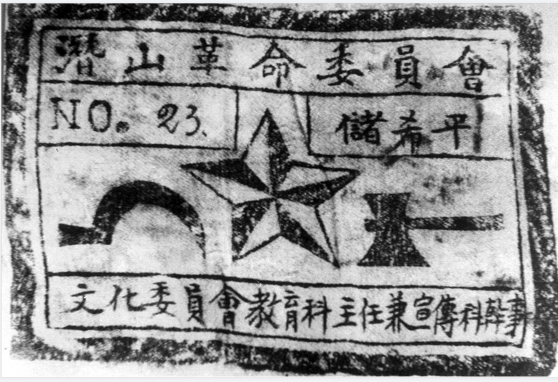 潛山革命委員會
NO. 23.
儲希平
文化委員會教育科主任兼宣傳科幹事